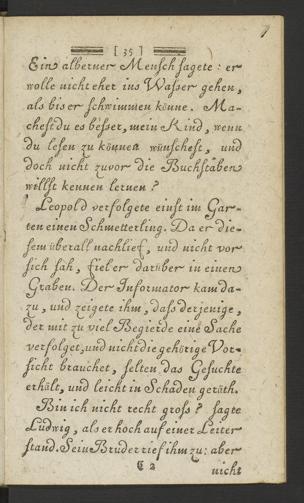 7
[ 35 ]
Ein alberner Mensch sagete: er
wolle nicht eher ins Wasser gehen,
als bis er schwimmen könne. Ma-
chest du es besser, mein Kind, wenn
du lesen zu können wünschest, und
doch nicht zuvor die Buchstaben
willst kennen lernen?
Leopold verfolgete einst im Gar-
ten einen Schmetterling. Da er die-
sem überall nachlief, und nicht vor
sich sah, fiel er darüber in einen
Graben. Der Informator kam da-
zu, und zeigete ihm, dass derjenige,
der mit zu viel Begierde eine Sache
verfolget, und nicht die gehörige Vor-
sicht brauchet, selten das Gesuchte
erhält, und leicht in Schaden geräth.
Bin ich nicht recht gross? sagte
Ludwig, als er hoch auf einer Leiter
stand. Sein Bruder rief ihm zu: aber
C 2
nicht